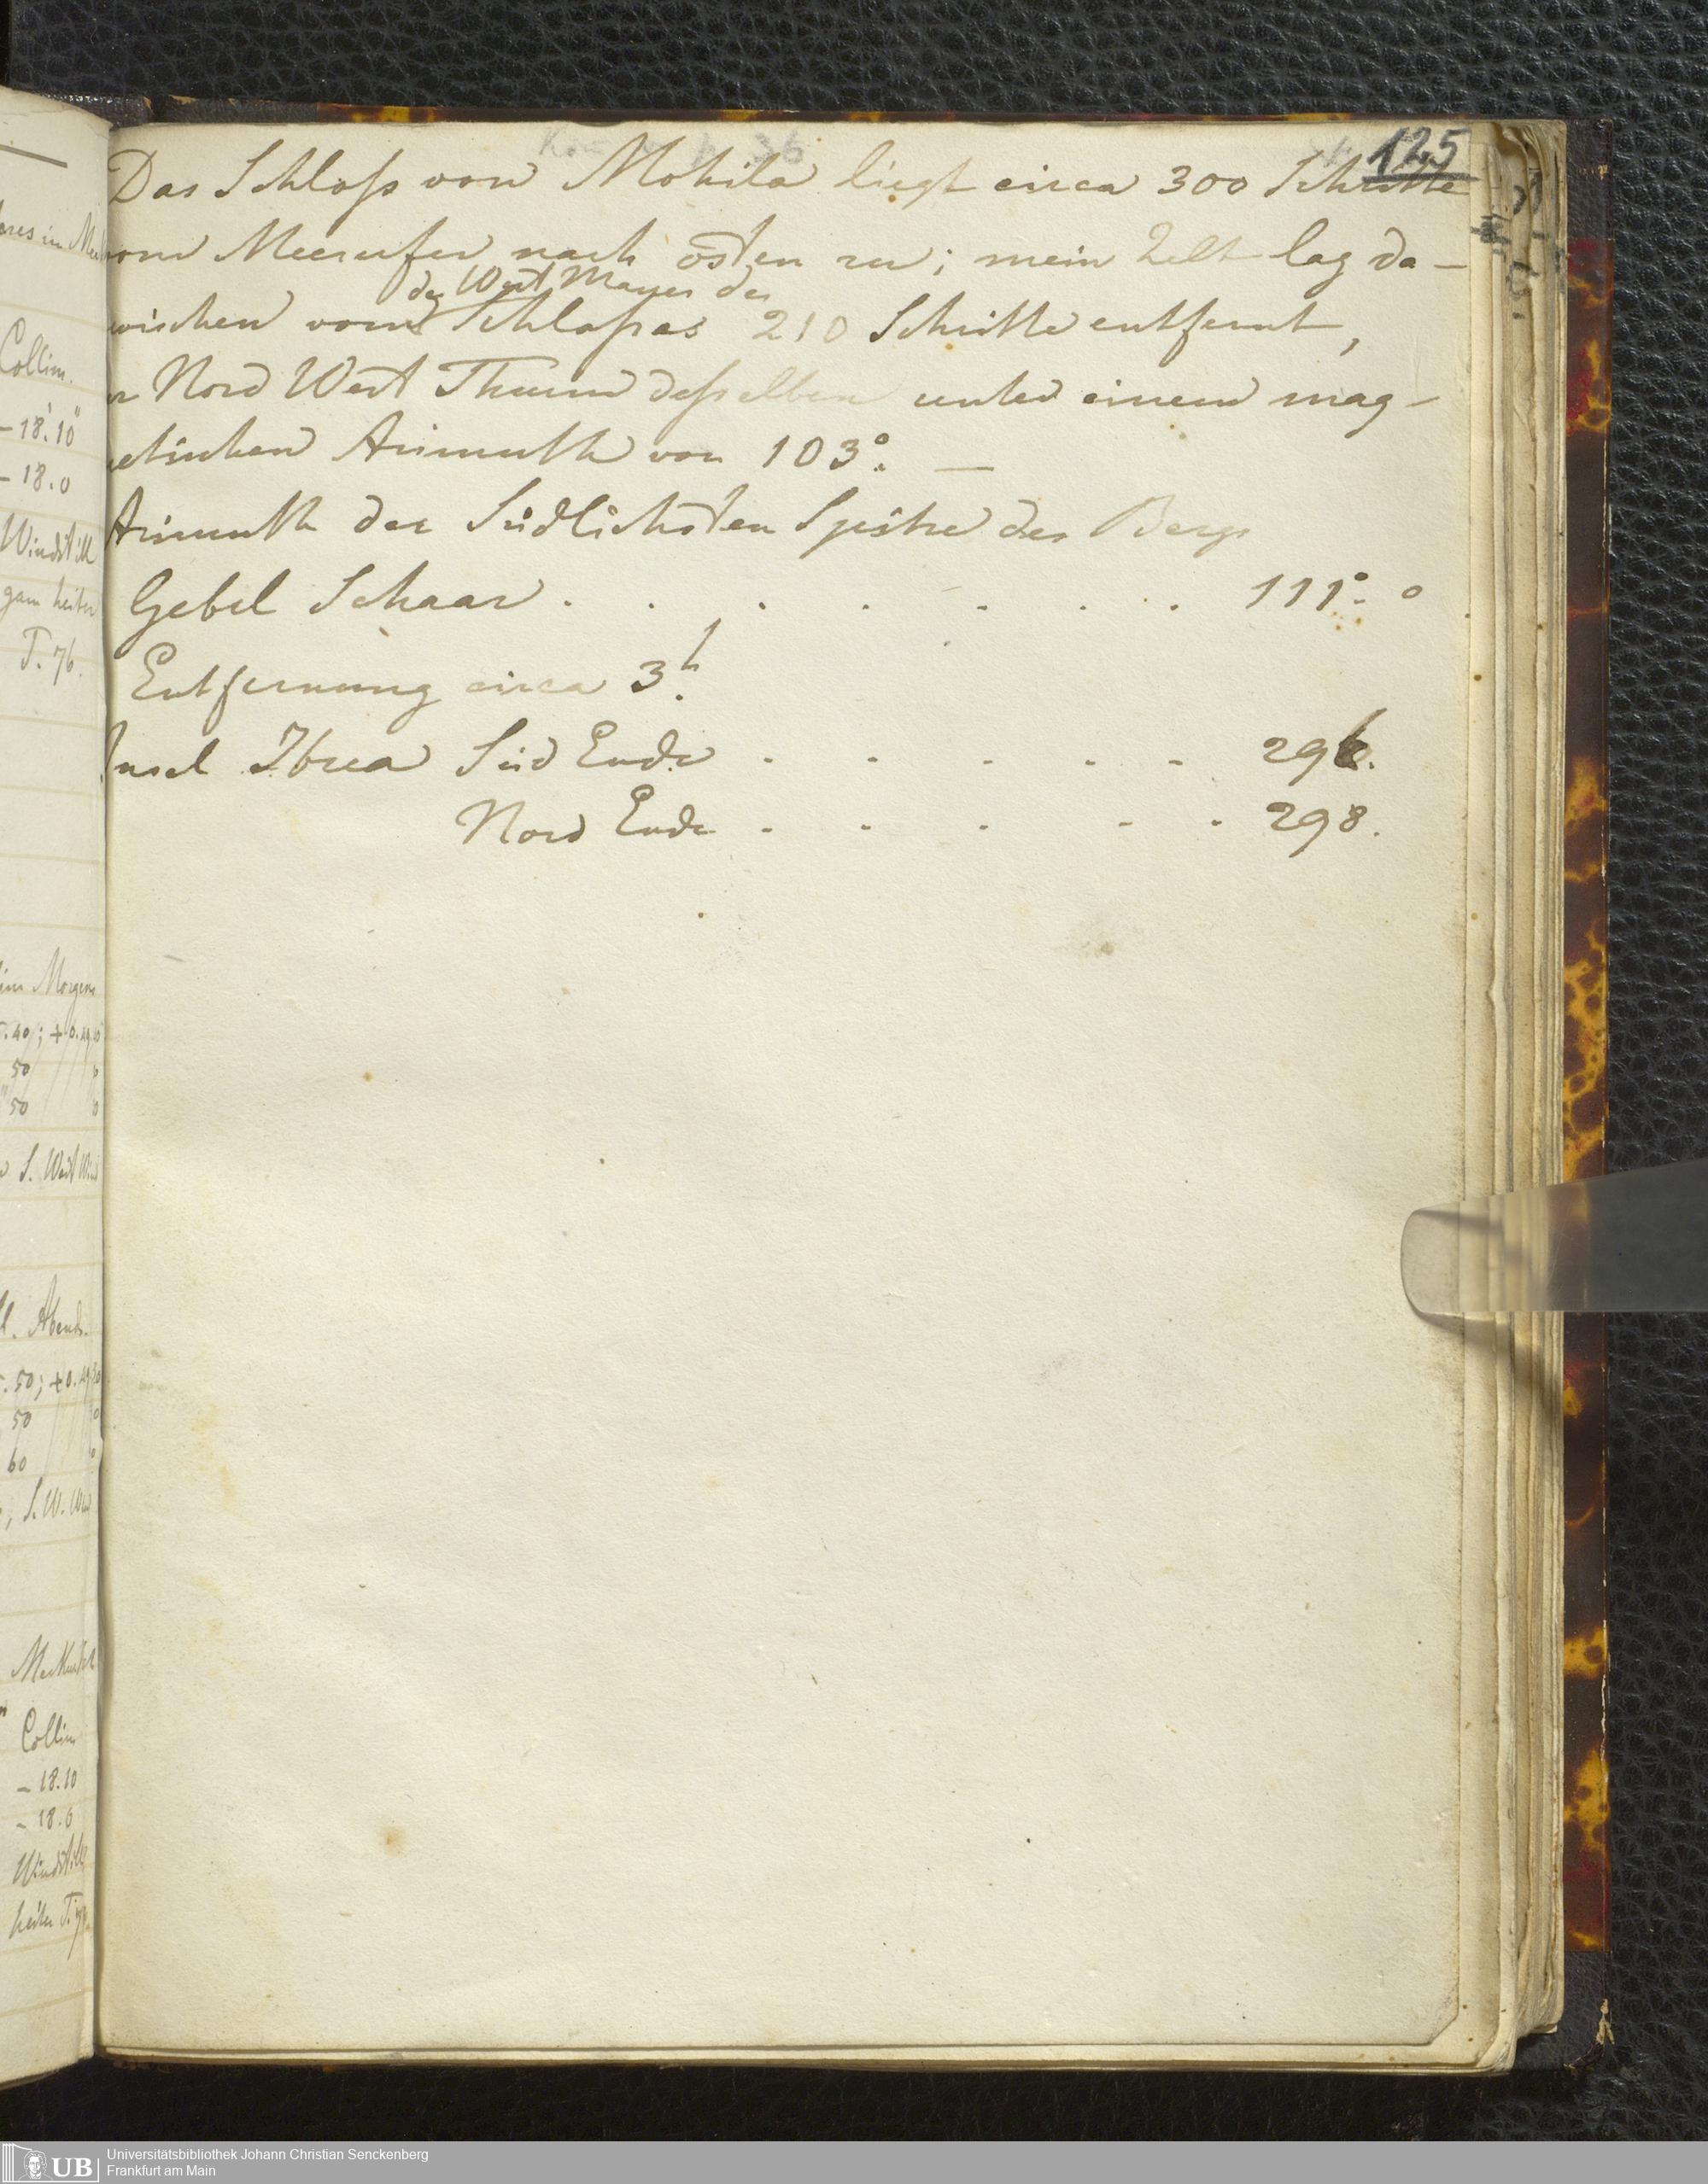 125
36
Das Schloß von Mohila liegt circa 300 Schritte
vom Meerufer nach osten zu; mein Zelt lag da-
der West Mauer des
wischen vom Schloßes 210 Schritte entfernt,
r Nord West Thurm desselben unter einem mag-
netischen Azimuth von 103°. —
Azimuth der Südlichsten Spitze des Bergs
Gebel Schaar . . . . . . . 111°. 0
Entfernung circa 3h.
Insel Ibrea Süd Ende . . . . . 296.
Nord Ende . . . . . 298.
Collim.
-18'.10"
-18.0
Windstill
ganz heiter
T. 76.
im Morgens
.40; +0.19.10
50
50
S. West Wind
Abends.
.50; +0.19.20
50 0
60
, S.W. Wind
Collim
-18.10
-18.0
Windstill
heiter
UB
Universitätsbibliothek Johann Christian Senckenberg
Frankfurt am Main